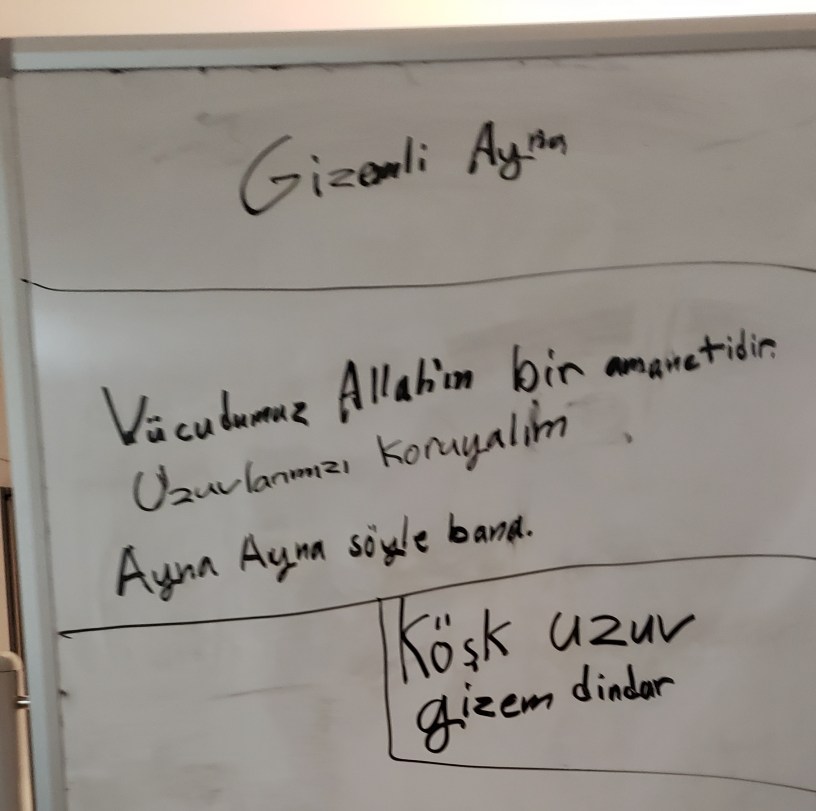 Gizemli Ayna
Vücudumuz Allah'ın bir amanetidir.
Uzuvlarımızı koruyalım.
Ayna Ayna söyle bana.
Köşk uzuv
gizem dindar